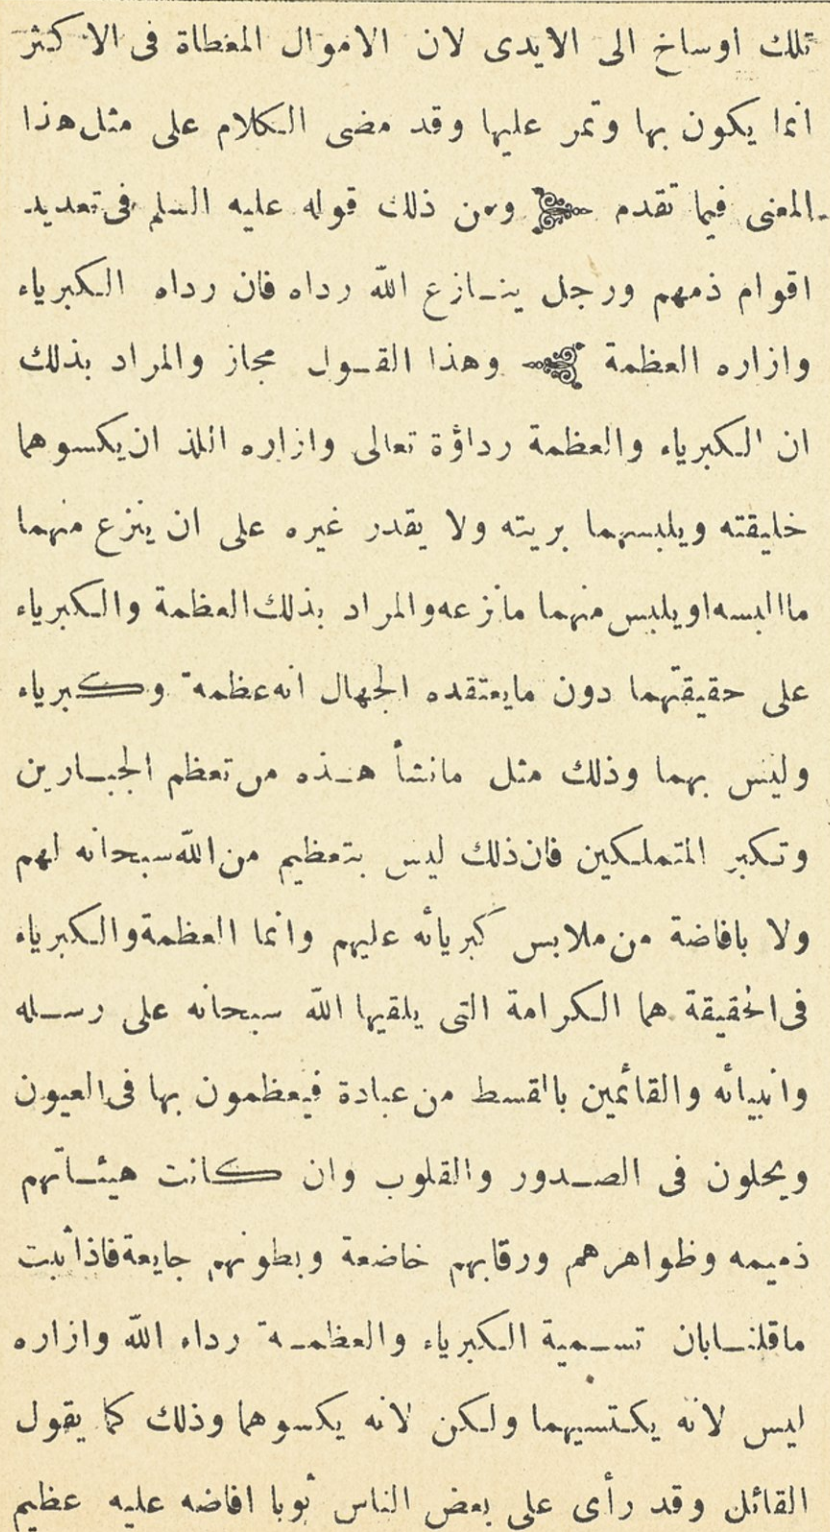 تلك اوساخ الى الايدى لان الاموال المغطاة فى الاكثر
انما يكون بها وتمر عليها وقد مضى الكلام على مثل هذا
المعنى فيما تقدم ومن ذلك قوله عليه السلم فى تعديد
اقوام ذمهم ورجل ينازع الله رداه فان رداه الكبرياء
وازاره العظمة وهذا القول مجاز والمراد بذلك
ان الكبرياء والعظمة رداؤة تعالى وازاره اللذ ان يكسوهما
خليقته ويلبسهما بريته ولا يقدر غيره على ان ينزع منهما
ما البسه او يلبس منهما مانزعه والمراد بذلك العظمة والكبرياء
على حقيقتهما دون مايعتقده الجهال انه عظمة وكبرياء
وليس بهما وذلك مثل مانشأ هذه من تعظم الجبارين
وتكبر المتملكين فان ذلك ليس بتعظيم من الله سبحانه لهم
ولا بافاضة من ملابس كبريائه عليهم وانما العظمة والكبرياء
فى الحقيقة هما الكرامة التى يلقيها الله سبحانه على رسله
وانبيائه والقائمين بالقسط من عبادة فيعظمون بها فى العيون
ويحلون فى الصدور والقلوب وان كانت هيئاتهم
ذميمه وظواهرهم ورقابهم خاضعة وبطونهم جايعة فاذا ثبت
ماقلنا بان تسمية الكبرياء والعظمة رداء الله وازاره
ليس لانه يكتسيهما ولكن لانه يكسوهما وذلك كما يقول
القائل وقد رأى على بعض الناس ثوبا افاضه عليه عظيم